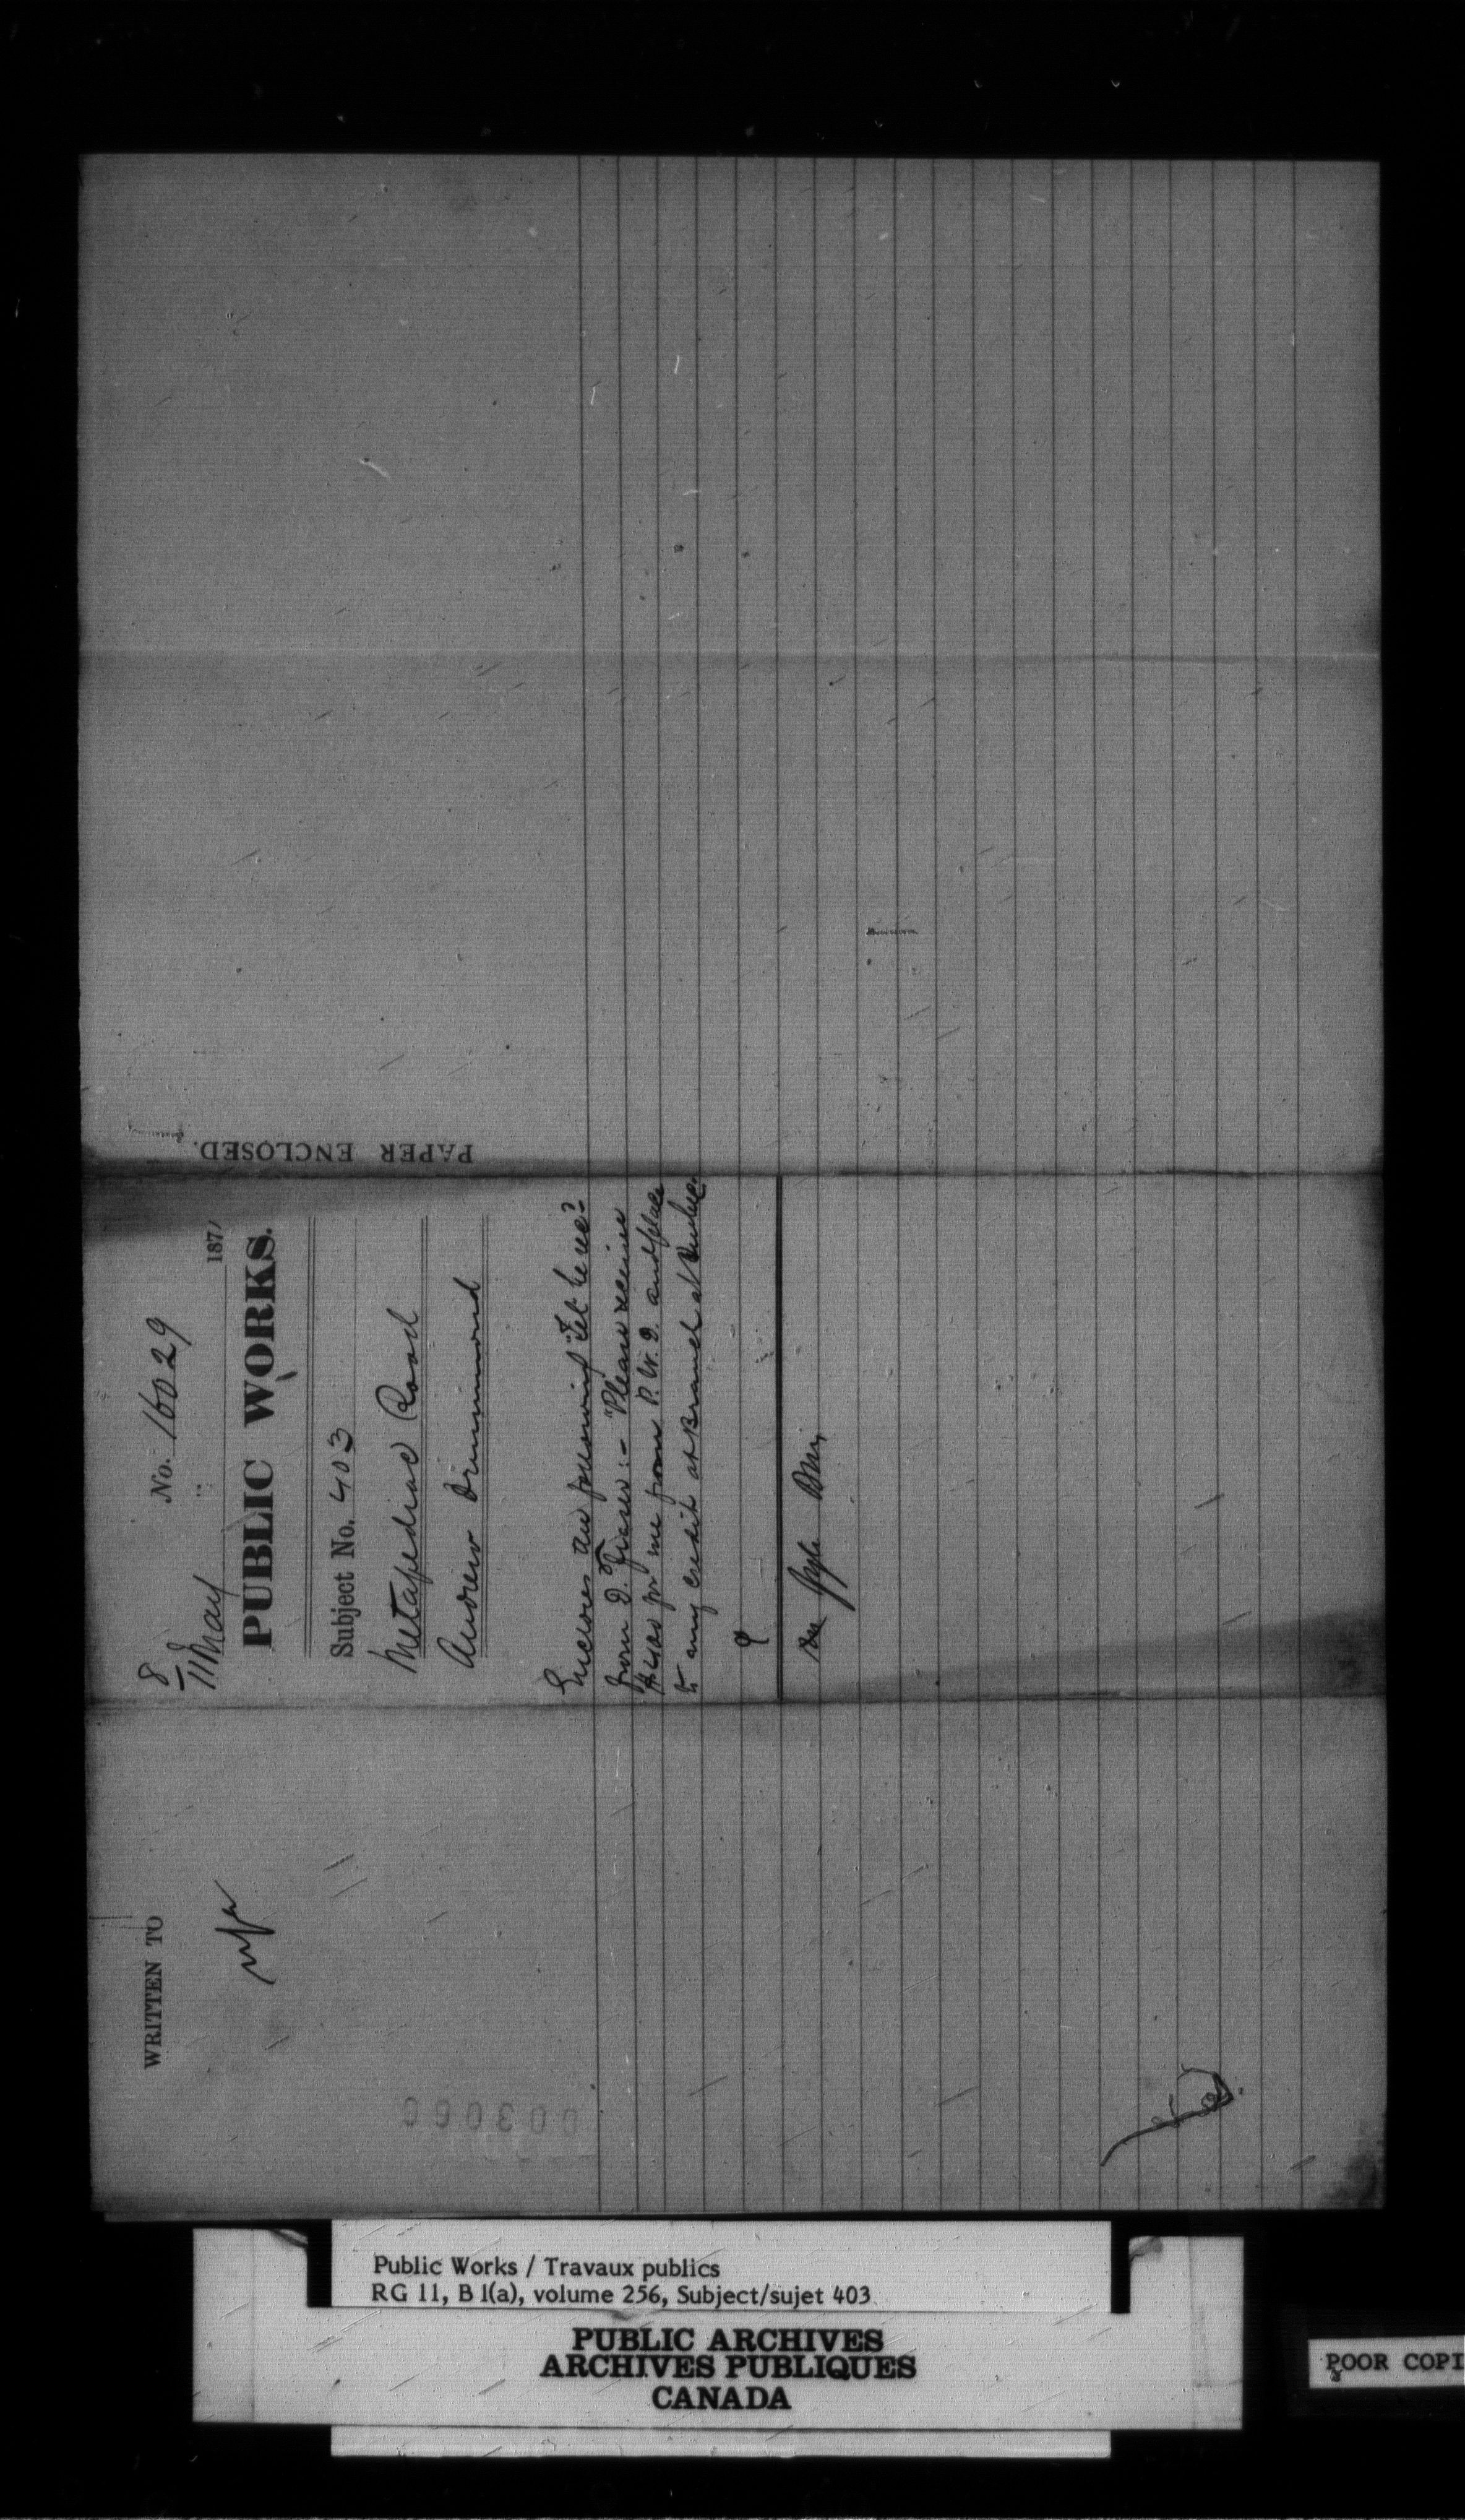 PAPER ENCLOSED.
No. 16029
8
11 May 1871
PUBLIC WORKS.
Subject No. 403
Metapediac Road
Andrew Drummond
Encloses the following Tel. he rec?
from D. Fraser :- "Please receive
for me from P. W. D. and place
to my credit at Branch at
WRITTEN TO
003066
Public Works / Travaux publics
RG 11, B 1(a), volume 256, Subject/sujet 403
PUBLIC ARCHIVES
ARCHIVES PUBLIQUES
CANADA
POOR COPI